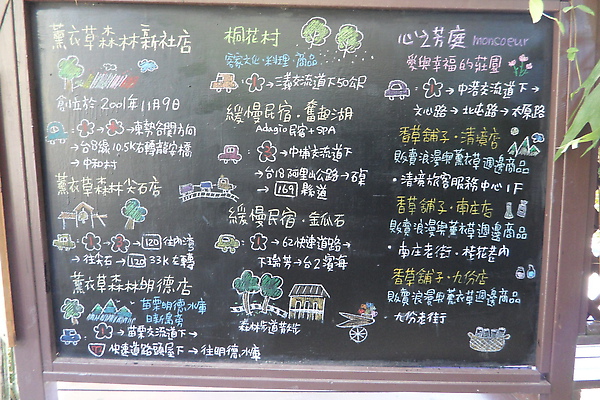 薰衣草森林新社店
創立於2001年11月9日
→ → 東勢谷關方向
→ 台8線10.5K右轉龍安橋
→ 中和村
薰衣草森林尖石店
→ → 120 往內灣
→ 往尖石 → 120 33K左轉
薰衣草森林明德店
苗栗明德水庫
日新島旁
→ 苗栗交流道下 →
快速道路頭屋下 → 往明德水庫
桐花村
客家文化·料理·商品
→ 三義交流道下50公尺
緩慢民宿·奮起湖
Adagio民宿+SPA
→ 中埔交流道下
→ 台18阿里山公路 → 石棹
→ 169 縣道
緩慢民宿·金瓜石
→ 62快速道路 →
下瑞芳 → 台2濱海
心之芳庭 moncoeur
樂與幸福的莊園
→ 中港交流道下 →
文心路 → 北屯路 → 水景路
香草舖子·清境店
販賣浪漫與薰衣草週邊商品
·清境旅客服務中心1F
香草舖子·南庄店
販賣浪漫與薰衣草週邊商品
·南庄老街·桂花巷內
香草舖子·九份店
販賣浪漫與薰衣草週邊商品
·九份老街